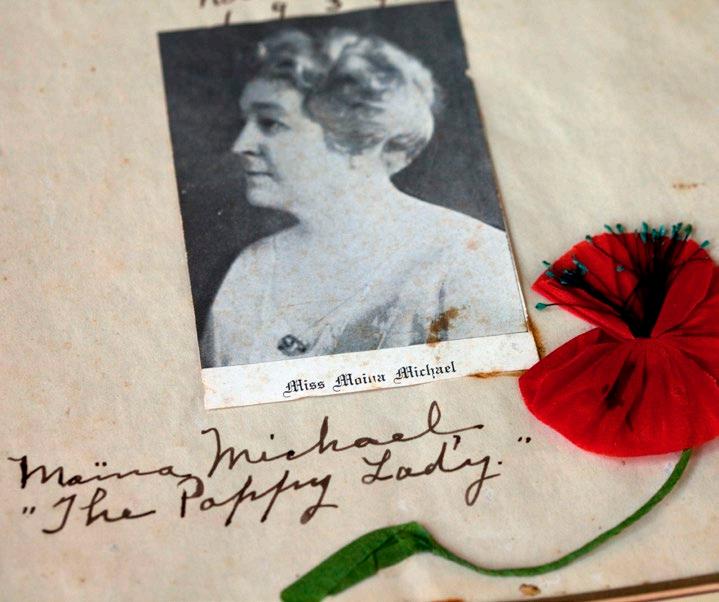 1934
Miss Moina Michael
Moïna Michael,
"The Poppy Lady."